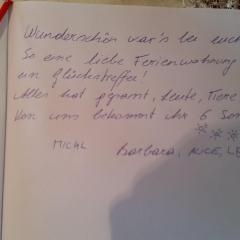 Wunderschön war's bei euch
So eine liebe Ferienwohnung
ein Glückstreffer!
Alles hat gepasst, Leute, Tiere
Von uns bekommt ihr 6 Son
MICHL Barbara, ALICE, LE